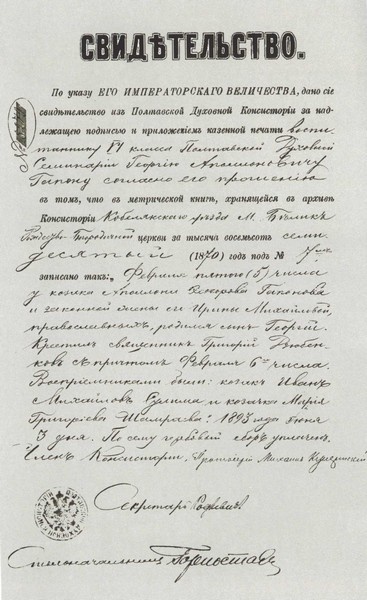 СВИДѢТЕЛЬСТВО.
По указу ЕГО ИМПЕРАТОРСКАГО ВЕЛИЧЕСТВА, дано сіе
свидѣтельство изъ Полтавской Духовной Консисторіи за над-
лежащею подписью и приложеніемъ казенной печати воспи-
таннику VI класса Полтавской Духовной
Семинаріи Георгію Аполлоновичу
Гапону согласно его прошенію
въ томъ, что въ метрической книгѣ, хранящейся въ архивѣ
Консисторіи Кобелякскаго уѣзда М. Бѣлик
Рождество Богородичной церкви за тысяча восемьсотъ семи
десятый (1870) годъ подъ №
записано такъ: Февраля пятаго (5) числа
у козака Аполлона Ѳедорова Гапонова
и законной жены его Ирины Михайловой,
православныхъ, родился сынъ Георгій.
Крестилъ священникъ Григорій
съ причтомъ Февраля 6 числа.
Воспріемниками были: козакъ Иванъ
Михайловъ и козачка Марія
Григоріева 1893 года Іюня
3 дня. По сему гербовый сборъ уплаченъ.
Членъ Консисторіи, Протоіерей Михаилъ
Секретарь
Столоначальникъ